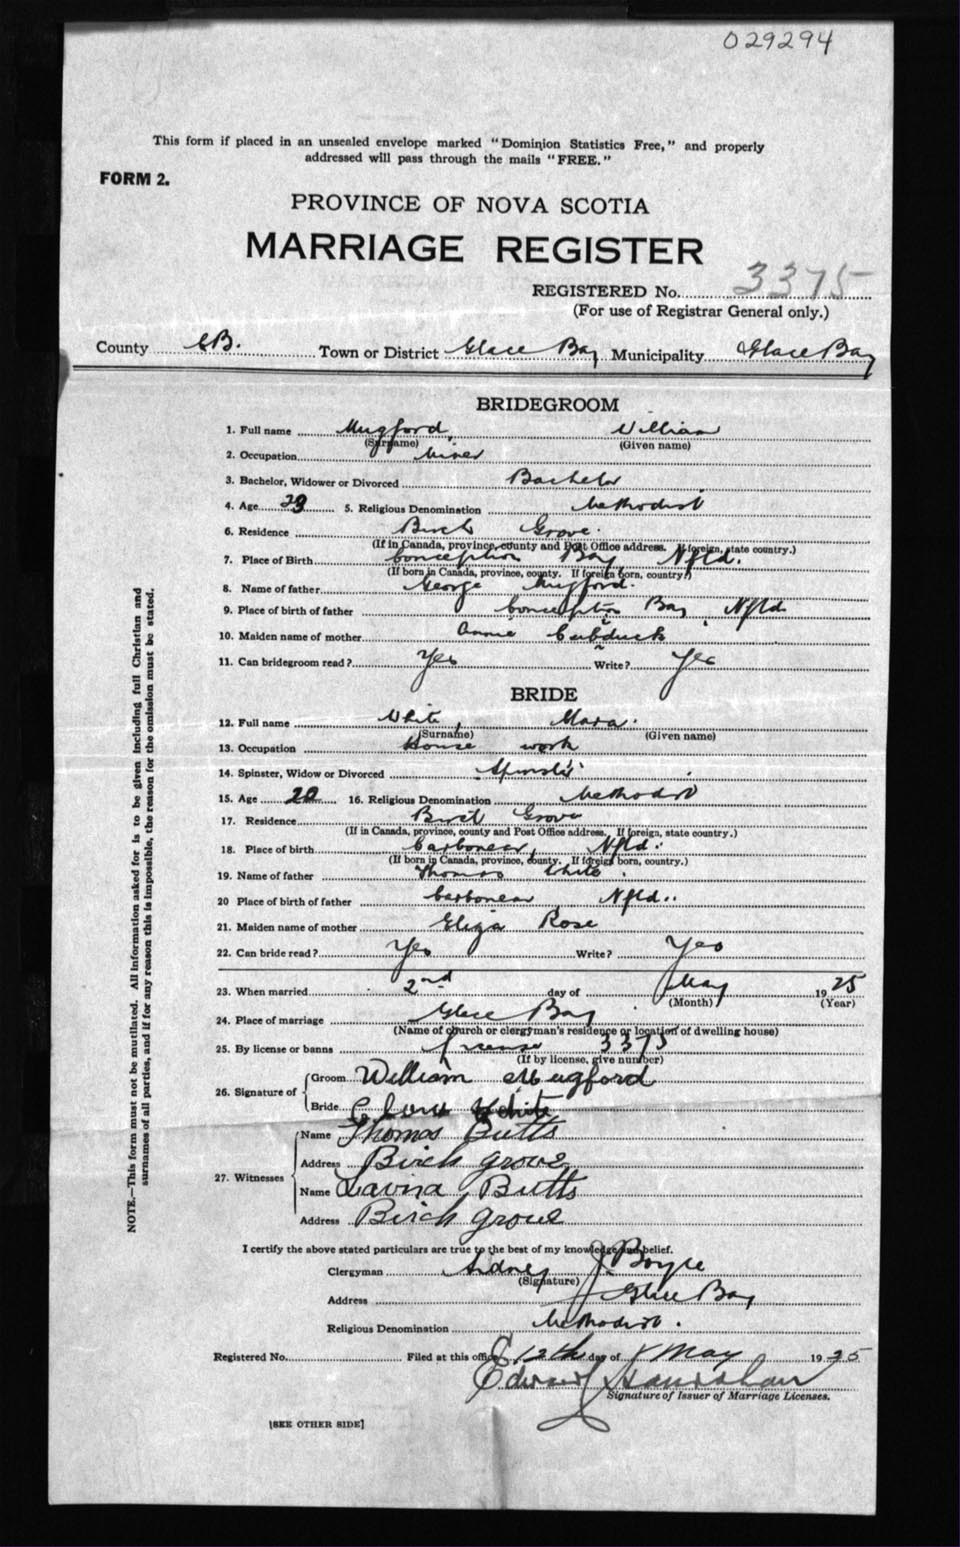 029294
This form if placed in an unsealed envelope marked "Dominion Statistics Free," and properly
addressed will pass through the mails "FREE."
FORM 2.
PROVINCE OF NOVA SCOTIA
MARRIAGE REGISTER
REGISTERED No. 3375
(For use of Registrar General only.)
County C.B. Town or District Glace Bay Municipality Glace Bay
BRIDEGROOM
1. Full name Mugford, William
(Surname) (Given name)
2. Occupation Miner
3. Bachelor, Widower or Divorced Bachelor
4. Age 29 5. Religious Denomination Methodist
6. Residence Birch Grove.
(If in Canada, province, county and Post Office address. If foreign, state country.)
7. Place of Birth Conception Bay Nfld.
(If born in Canada, province, county. If foreign born, country.)
8. Name of father George Mugford.
9. Place of birth of father Conception Bay, Nfld
10. Maiden name of mother Annie
11. Can bridegroom read? Yes Write? Yes
BRIDE
12. Full name White,
(Surname) (Given name)
13. Occupation House work
14. Spinster, Widow or Divorced Spinster
15. Age 20 16. Religious Denomination Methodist
17. Residence Birch Grove
(If in Canada, province, county and Post Office address. If foreign, state country.)
18. Place of birth Carbonear, Nfld.
(If born in Canada, province, county. If foreign born, country.)
19. Name of father Thomas White.
20 Place of birth of father Carbonear Nfld..
21. Maiden name of mother Eliza Rose
22. Can bride read? Yes Write? Yes
23. When married 2nd day of May 1925
(Month) (Year)
24. Place of marriage Glace Bay
(Name of church or clergyman's residence or location of dwelling house)
25. By license or banns License 3375
(If by license, give number)
26. Signature of
Groom William Mugford
Bride White
27. Witnesses
Name Thomas Butts
Address Birch grove
Name Lavina Butts
Address Birch grove
I certify the above stated particulars are true to the best of my knowledge and belief.
Clergyman Sidney J. Boyce
(Signature)
Address Glace Bay
Religious Denomination Methodist.
Registered No. Filed at this office 12th day of May 1925
Edward
Signature of Issuer of Marriage Licenses.
[SEE OTHER SIDE]
NOTE.—This form must not be mutilated. All information asked for is to be given including full Christian and
surnames of all parties, and if for any reason this is impossible, the reason for the omission must be stated.